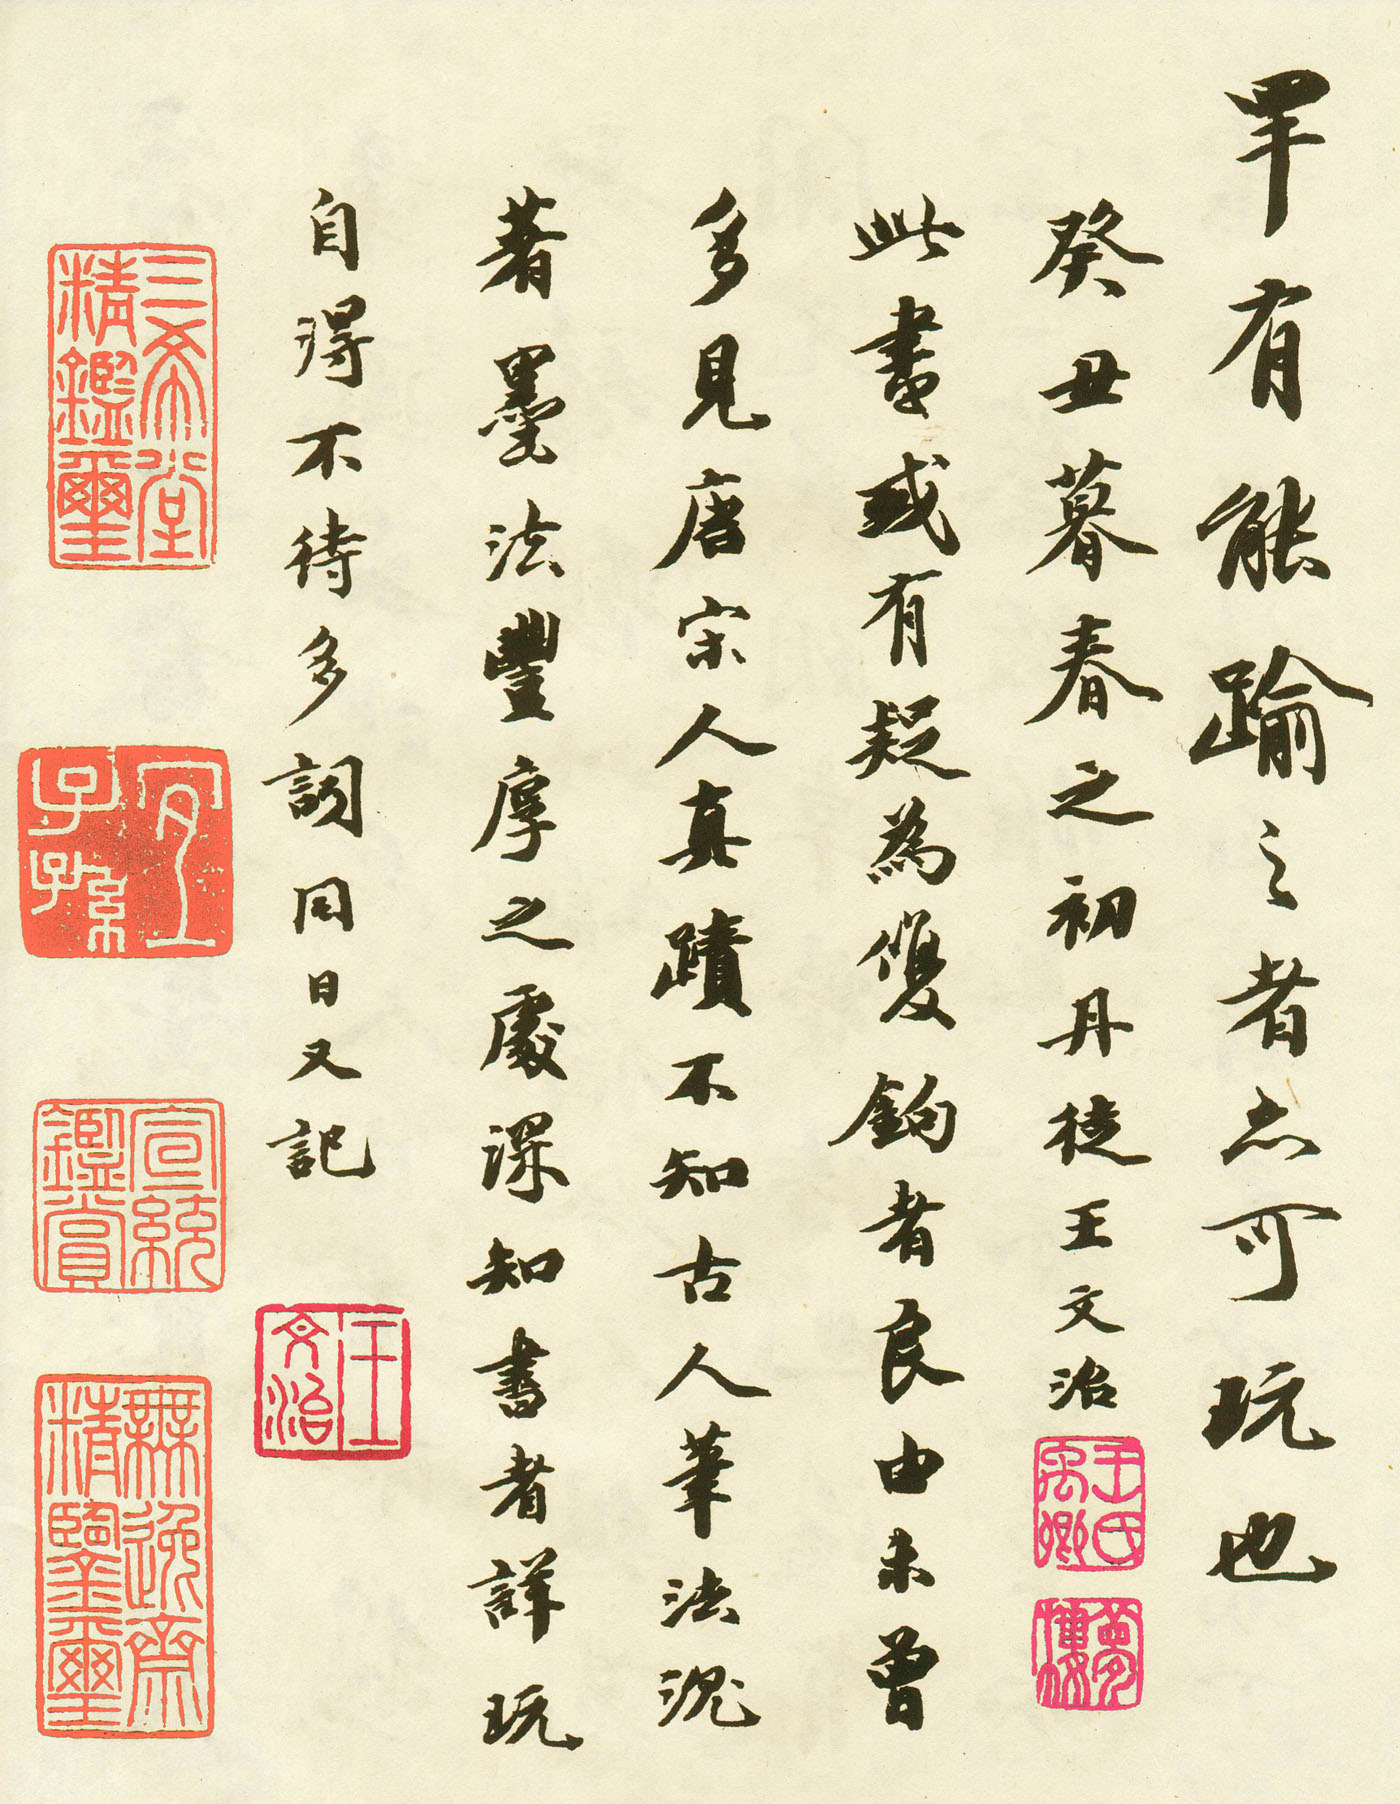 罕有能踰之者亦可玩也
癸丑暮春之初丹徒王文治
王氏禹卿
夢樓
此書或有疑為雙鉤者良由未曾
多見唐宋人真蹟不知古人筆法況
著墨法豐厚之處深知書者詳玩
自得不待多詞同日又記
王文治
三希堂精鑑璽
宜子孫
宣統鑑賞
無逸齋精鑒璽